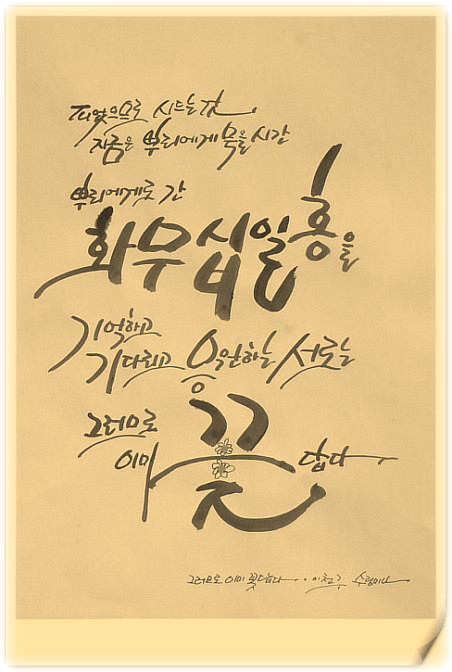 피었으므로 시드는 것.
지금은 뿌리에게 묵을 시간
뿌리에게로 간
화무십일홍을
기억하고
기다리고 응원하는 서로는
그러므로
이미 꽃답다.
그러므로 이미 꽃답다...